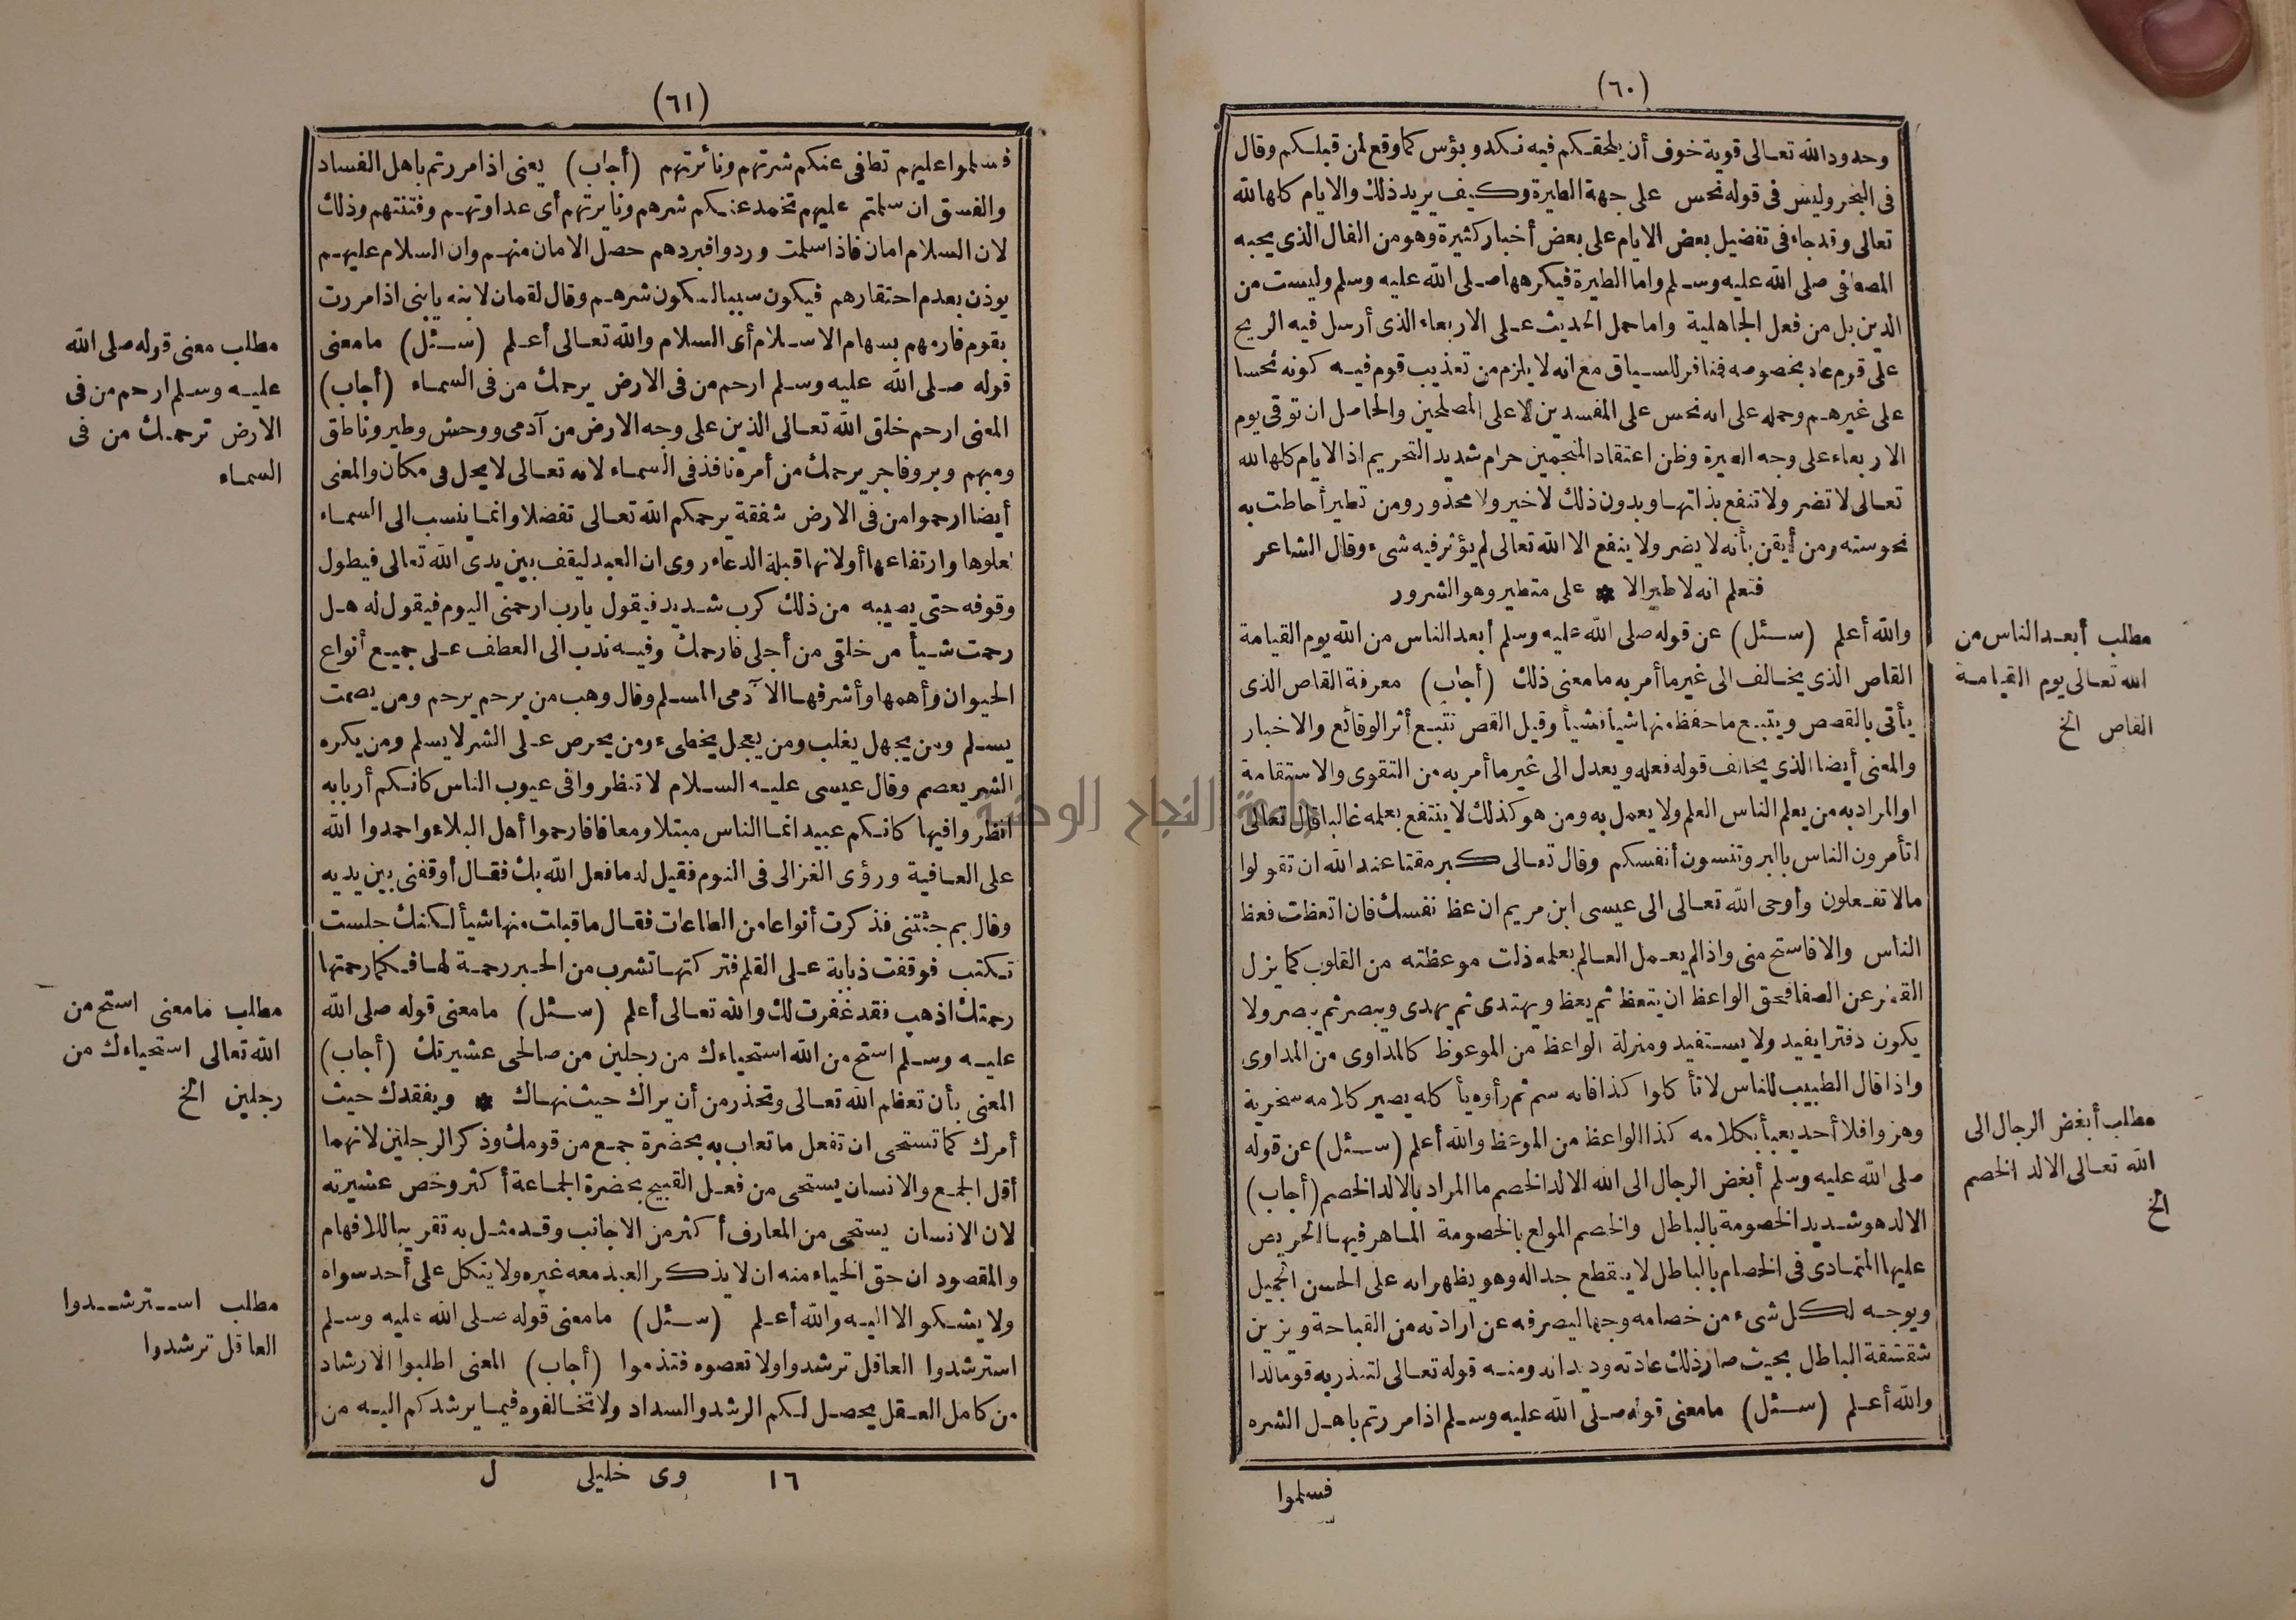 (٦٠)
وحدود الله تعالى قوية خوف أن يلحقكم فيه نكد وبؤس كما وقع لمن قبلكم وقال
فى البحر وليس فى قوله نحس على جهة الطيرة وكيف يريد ذلك والايام كلها لله
تعالى وقد جاء فى تفضيل بعض الايام على بعض أخبار كثيرة وهو من الفال الذى يحبه
المصطفى صلى الله عليه وسلم واما الطيرة فيكرهها صلى الله عليه وسلم وليست من
الدين بل من فعل الجاهلية واما حمل الحديث على الاربعاء الذى أرسل فيه الريح
على قوم عاد بخصوصه فمنافر للسياق مع انه لا يلزم من تعذيب قوم فيه كونه نحسا
على غيرهم وحمله على انه نحس على المفسدين لا على المصلحين والحاصل ان توقى يوم
الاربعاء على وجه الطيرة وظن اعتقاد المنجمين حرام شديد التحريم اذ الايام كلها لله
تعالى لا تضر ولا تنفع بذاتها وبدون ذلك لا خير ولا محذور ومن تطير أحاطت به
نحوسته ومن أيقن بأنه لا يضر ولا ينفع الا الله تعالى لم يؤثر فيه شىء وقال الشاعر
فتعلم انه لا طير الا * على متطير وهو الشرور
والله أعلم (سئل) عن قوله صلى الله عليه وسلم أبعد الناس من الله يوم القيامة
القاص الذى يخالف الى غير ما أمر به ما معنى ذلك (أجاب) معرفة القاص الذى
يأتى بالقصص ويتبع ما حفظ منها شيأ فشيأ وقيل القص تتبع أثر الوقائع والاخبار
والمعنى أيضا الذى يخالف قوله فعله ويعدل الى غير ما أمر به من التقوى والاستقامة
او المراد به من يعلم الناس العلم ولا يعمل به ومن هو كذلك لا ينتفع بعلمه غالبا قال تعالى
اتأمرون الناس بالبر وتنسون أنفسكم وقال تعالى كبر مقتا عند الله ان تقولوا
مالا تفعلون وأوحى الله تعالى الى عيسى ابن مريم ان عظ نفسك فان اتعظت فعظ
الناس والا فاستح منى واذا لم يعمل العالم بعلمه ذلت موعظته من القلوب كما يزل
القطر عن الصفا فحق الواعظ ان يتعظ ثم يعظ ويهتدى ثم يهدى ويبصر ثم يبصر ولا
يكون دفترا يفيد ولا يستفيد ومنزلة الواعظ من الموعوظ كالمداوى من المداوى
واذا قال الطبيب للناس لا تأكلوا كذا فانه سم ثم رأوه يأكله يصير كلامه سخرية
وهزوا فلا أحد يعبأ بكلامه كذا الواعظ من الموعظ والله أعلم (سئل) عن قوله
صلى الله عليه وسلم أبغض الرجال الى الله الالد الخصم ما المراد بالالد الخصم (أجاب)
الالد هو شديد الخصومة بالباطل والخصم المولع بالخصومة الماهر فيها الحريص
عليها المتمادى فى الخصام بالباطل لا ينقطع جداله وهو يظهر انه على الحسن الجميل
ويوجه لكل شىء من خصامه وجها ليصرفه عن ارادته من القباحة ويزين
شقشقة الباطل بحيث صار ذلك عادته وديدانه ومنه قوله تعالى لتنذر به قوما لدا
والله أعلم (سئل) ما معنى قوله صلى الله عليه وسلم اذا مررتم باهل الشره
فسلموا
مطلب أبعد الناس من
الله تعالى يوم القيامة
القاص الخ
مطلب أبغض الرجال الى
الله تعالى الالد الخصم
الخ
(٦١)
فسلموا عليهم تطفى عنكم شرتهم ونائرتهم (أجاب) يعنى اذا مررتم باهل الفساد
والفسق ان سلمتم عليهم تخمد عنكم شرهم ونايرتهم أى عداوتهم وفتنتهم وذلك
لان السلام امان فاذا سلمت وردوا فبردهم حصل الامان منهم وان السلام عليهم
يوذن بعدم احتقارهم فيكون سببا لسكون شرهم وقال لقمان لابنه يا بنى اذا مررت
بقوم فارمهم بسهام الاسلام أى السلام والله تعالى أعلم (سئل) ما معنى
قوله صلى الله عليه وسلم ارحم من فى الارض يرحمك من فى السماء (أجاب)
المعنى ارحم خلق الله تعالى الذين على وجه الارض من آدمى ووحش وطير وناطق
ومبهم وبر وفاجر يرحمك من أمره نافذ فى السماء لانه تعالى لا يحل فى مكان والمعنى
أيضا ارحموا من فى الارض شفقة يرحمكم الله تعالى تفضلا وانما ينسب الى السماء
لعلوها وارتفاعها أولانها قبلة الدعاء روى ان العبد ليقف بين يدى الله تعالى فيطول
وقوفه حتى يصيبه من ذلك كرب شديد فيقول يارب ارحمنى اليوم فيقول له هل
رحمت شيأ من خلقى من أجلى فارحمك وفيه ندب الى العطف على جميع أنواع
الحيوان وأهمها وأشرفها الآدمى المسلم وقال وهب من يرحم يرحم ومن يصمت
يسلم ومن يجهل يغلب ومن يعجل يخطىء ومن يحرص على الشر لا يسلم ومن يكره
الشر يعصم وقال عيسى عليه السلام لا تنظروا فى عيوب الناس كانكم أربابه
انظروا فيها كانكم عبيد انما الناس مبتلا ومعافا فارحموا أهل البلاء واحمدوا الله
على العافية ورؤى الغزالى فى النوم فقيل له ما فعل الله بك فقال أوقفنى بين يديه
وقال بم جئتنى فذكرت أنواعا من الطاعات فقال ما قبلت منها شيأ لكنك جلست
تكتب فوقفت ذبابة على القلم فتركتها تشرب من الحبر رحمة لها فكما رحمتها
رحمتك اذهب فقد غفرت لك والله تعالى أعلم (سئل) ما معنى قوله صلى الله
عليه وسلم استح من الله استحياءك من رجلين من صالحى عشيرتك (أجاب)
المعنى بأن تعظم الله تعالى وتحذر من أن يراك حيث نهاك * ويفقدك حيث
أمرك كما تستحى ان تفعل ما تعاب به بحضرة جمع من قومك وذكر الرجلين لانهما
أقل الجمع والانسان يستحى من فعل القبيح بحضرة الجماعة أكثر وخص عشيرته
لان الانسان يستحى من المعارف أكثر من الاجانب وقد مثل به تقريبا للافهام
والمقصود ان حق الحياء منه ان لا يذكر العبد معه غيره ولا يتكل على أحد سواه
ولا يشكو الا اليه والله أعلم (سئل) ما معنى قوله صلى الله عليه وسلم
استرشدوا العاقل ترشدوا ولا تعصوه فتذموا (أجاب) المعنى اطلبوا الارشاد
من كامل العقل يحصل لكم الرشد والسداد ولا تخالفوه فيما يرشدكم اليه من
١٦ وى خليلى ل
مطلب معنى قوله صلى الله
عليه وسلم ارحم من فى
الارض ترحمك من فى
السماء
مطلب ما معنى استح من
الله تعالى استحياءك من
رجلين الخ
مطلب استرشدوا
العاقل ترشدوا
جامعة النجاح الوطنية